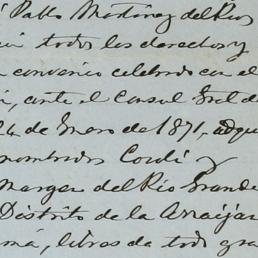 Pablo Martínez del Rio
todos los derechos y
convenio celebrado con el
ante el Consul Gral de
24 de Enero de 1871, adqui
nombrados Condi y
Margen del Rio Grande
Distrito de la Arraijan
má, libres de todo gra